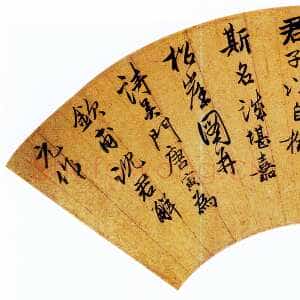 君子以自
斯名深堪嘉
松崖圖并
詩吴門唐寅為
欽甫沈君解
元作